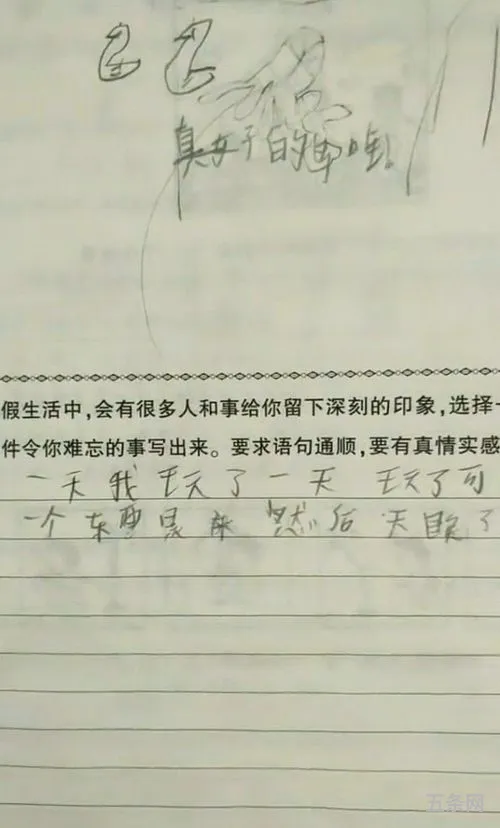 真好的単哇!
假生活中,会有很多人和事给你留下深刻的印象,选择一
件令你难忘的事写出来。要求语句通顺,要有真情实感
一天我玩了一天 玩了
一个东西 然后天黑了
五条网